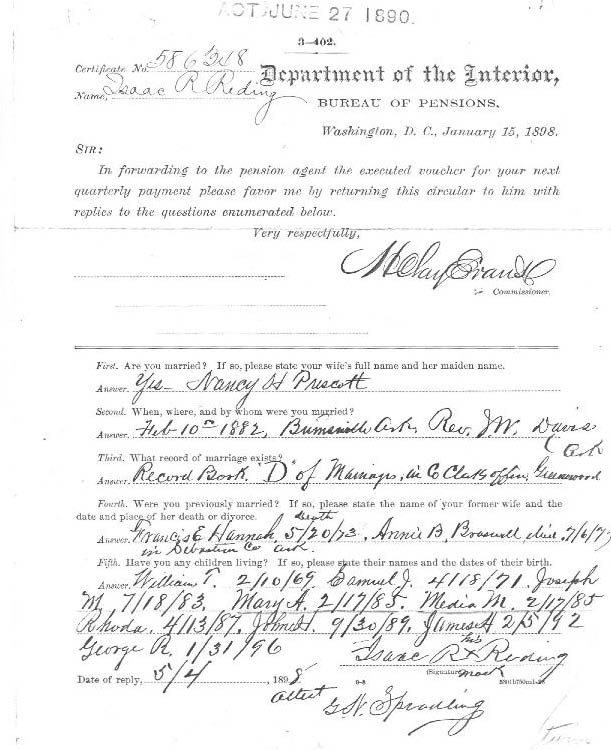 ACT JUNE 27 1890.
3-402.
Certificate No. 586348
Department of the Interior,
Name, Isaac R Reding
BUREAU OF PENSIONS,
Washington, D. C., January 15, 1898.
SIR:
In forwarding to the pension agent the executed voucher for your next
quarterly payment please favor me by returning this circular to him with
replies to the questions enumerated below.
Very respectfully,
H Clay Evans
Commissioner.
First. Are you married? If so, please state your wife's full name and her maiden name.
Answer. Yes - Nancy H Prescott
Second. When, where, and by whom were you married?
Answer. Feb 10th 1882, Burnsville Ark, Rev. J.W. Davis
Ark
Third. What record of marriage exists?
Answer. Record Book "D" of Mairiages, in Co Clerks office, Greenwood
Fourth. Were you previously married? If so, please state the name of your former wife and the
date and place of her death or divorce. death
Answer. Francis E Hannah, 5/20/73, Annie B, Braswell, died 7/6/7
in Sebastian Co Ark.
Fifth. Have you any children living? If so, please state their names and the dates of their birth.
Answer. William T. 2/10/69, Samuel J. 4/18/71. Joseph
M, 7/18/83. Mary A. 2/17/85. Media M. 2/17/85
Rhoda. 4/13/87. John H. 9/30/89, James A 2/5/92
George R. 1/31/96
his
Isaac R X Reding
(Signature) mark
Date of reply, 5/4, 1898
attest
G.N. Spradling